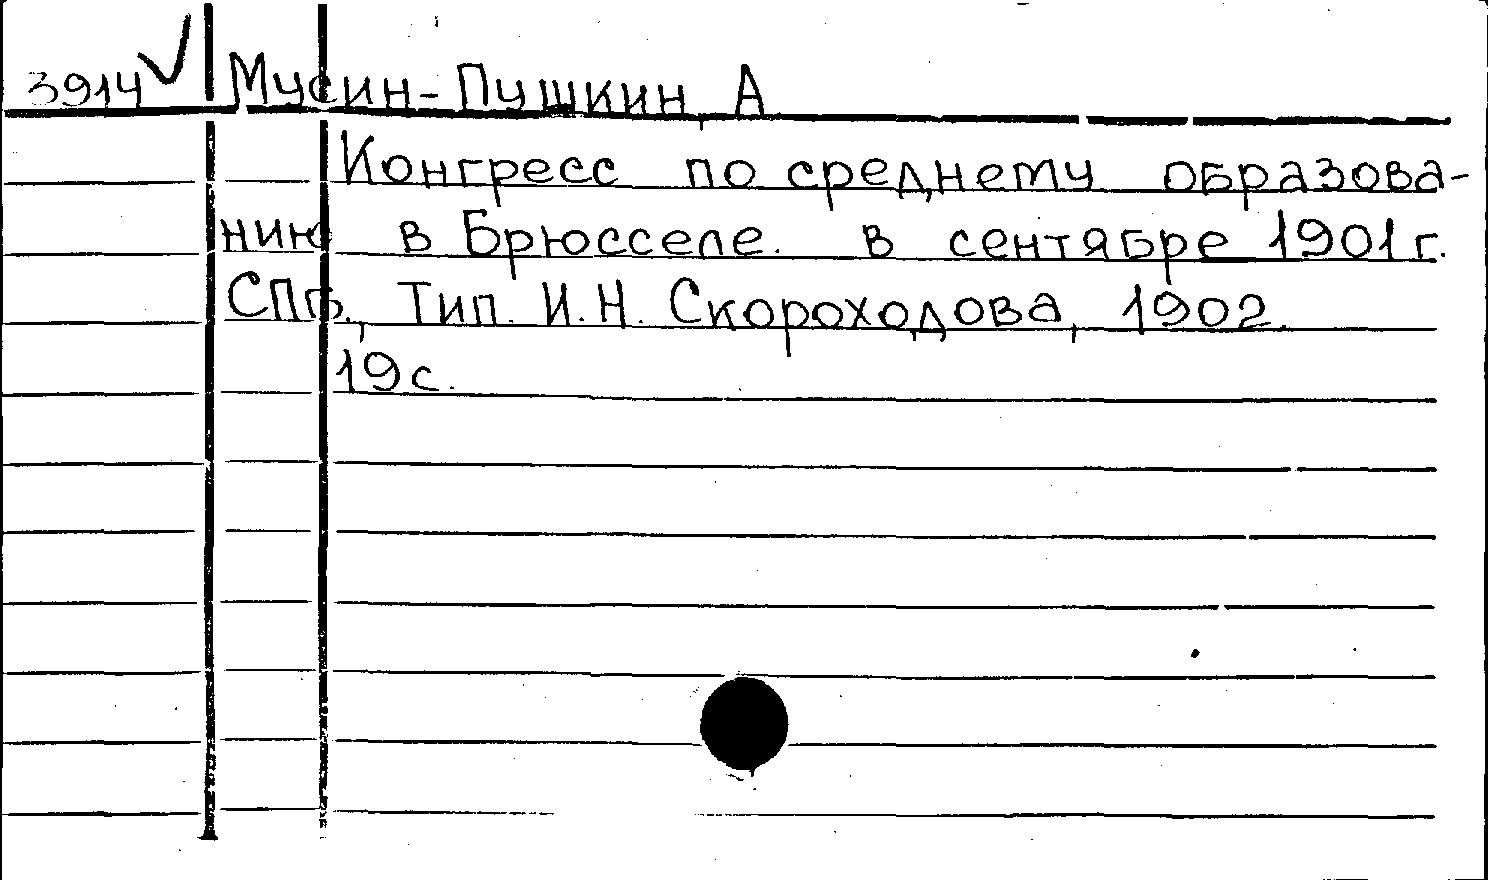 3914 Мусин-Пушкин, А
Конгресс по среднему образова-
нию в Брюсселе. в сентябре 1901 г.
СПб., Тип. И.Н. Скороходова, 1902.
19 с.